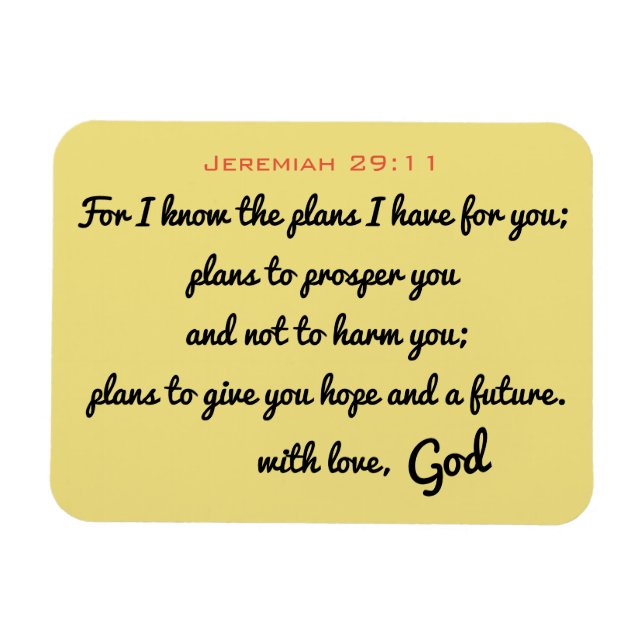 Jeremiah 29:11
For I know the plans I have for you;
plans to prosper you
and not to harm you;
plans to give you hope and a future.
with love, God